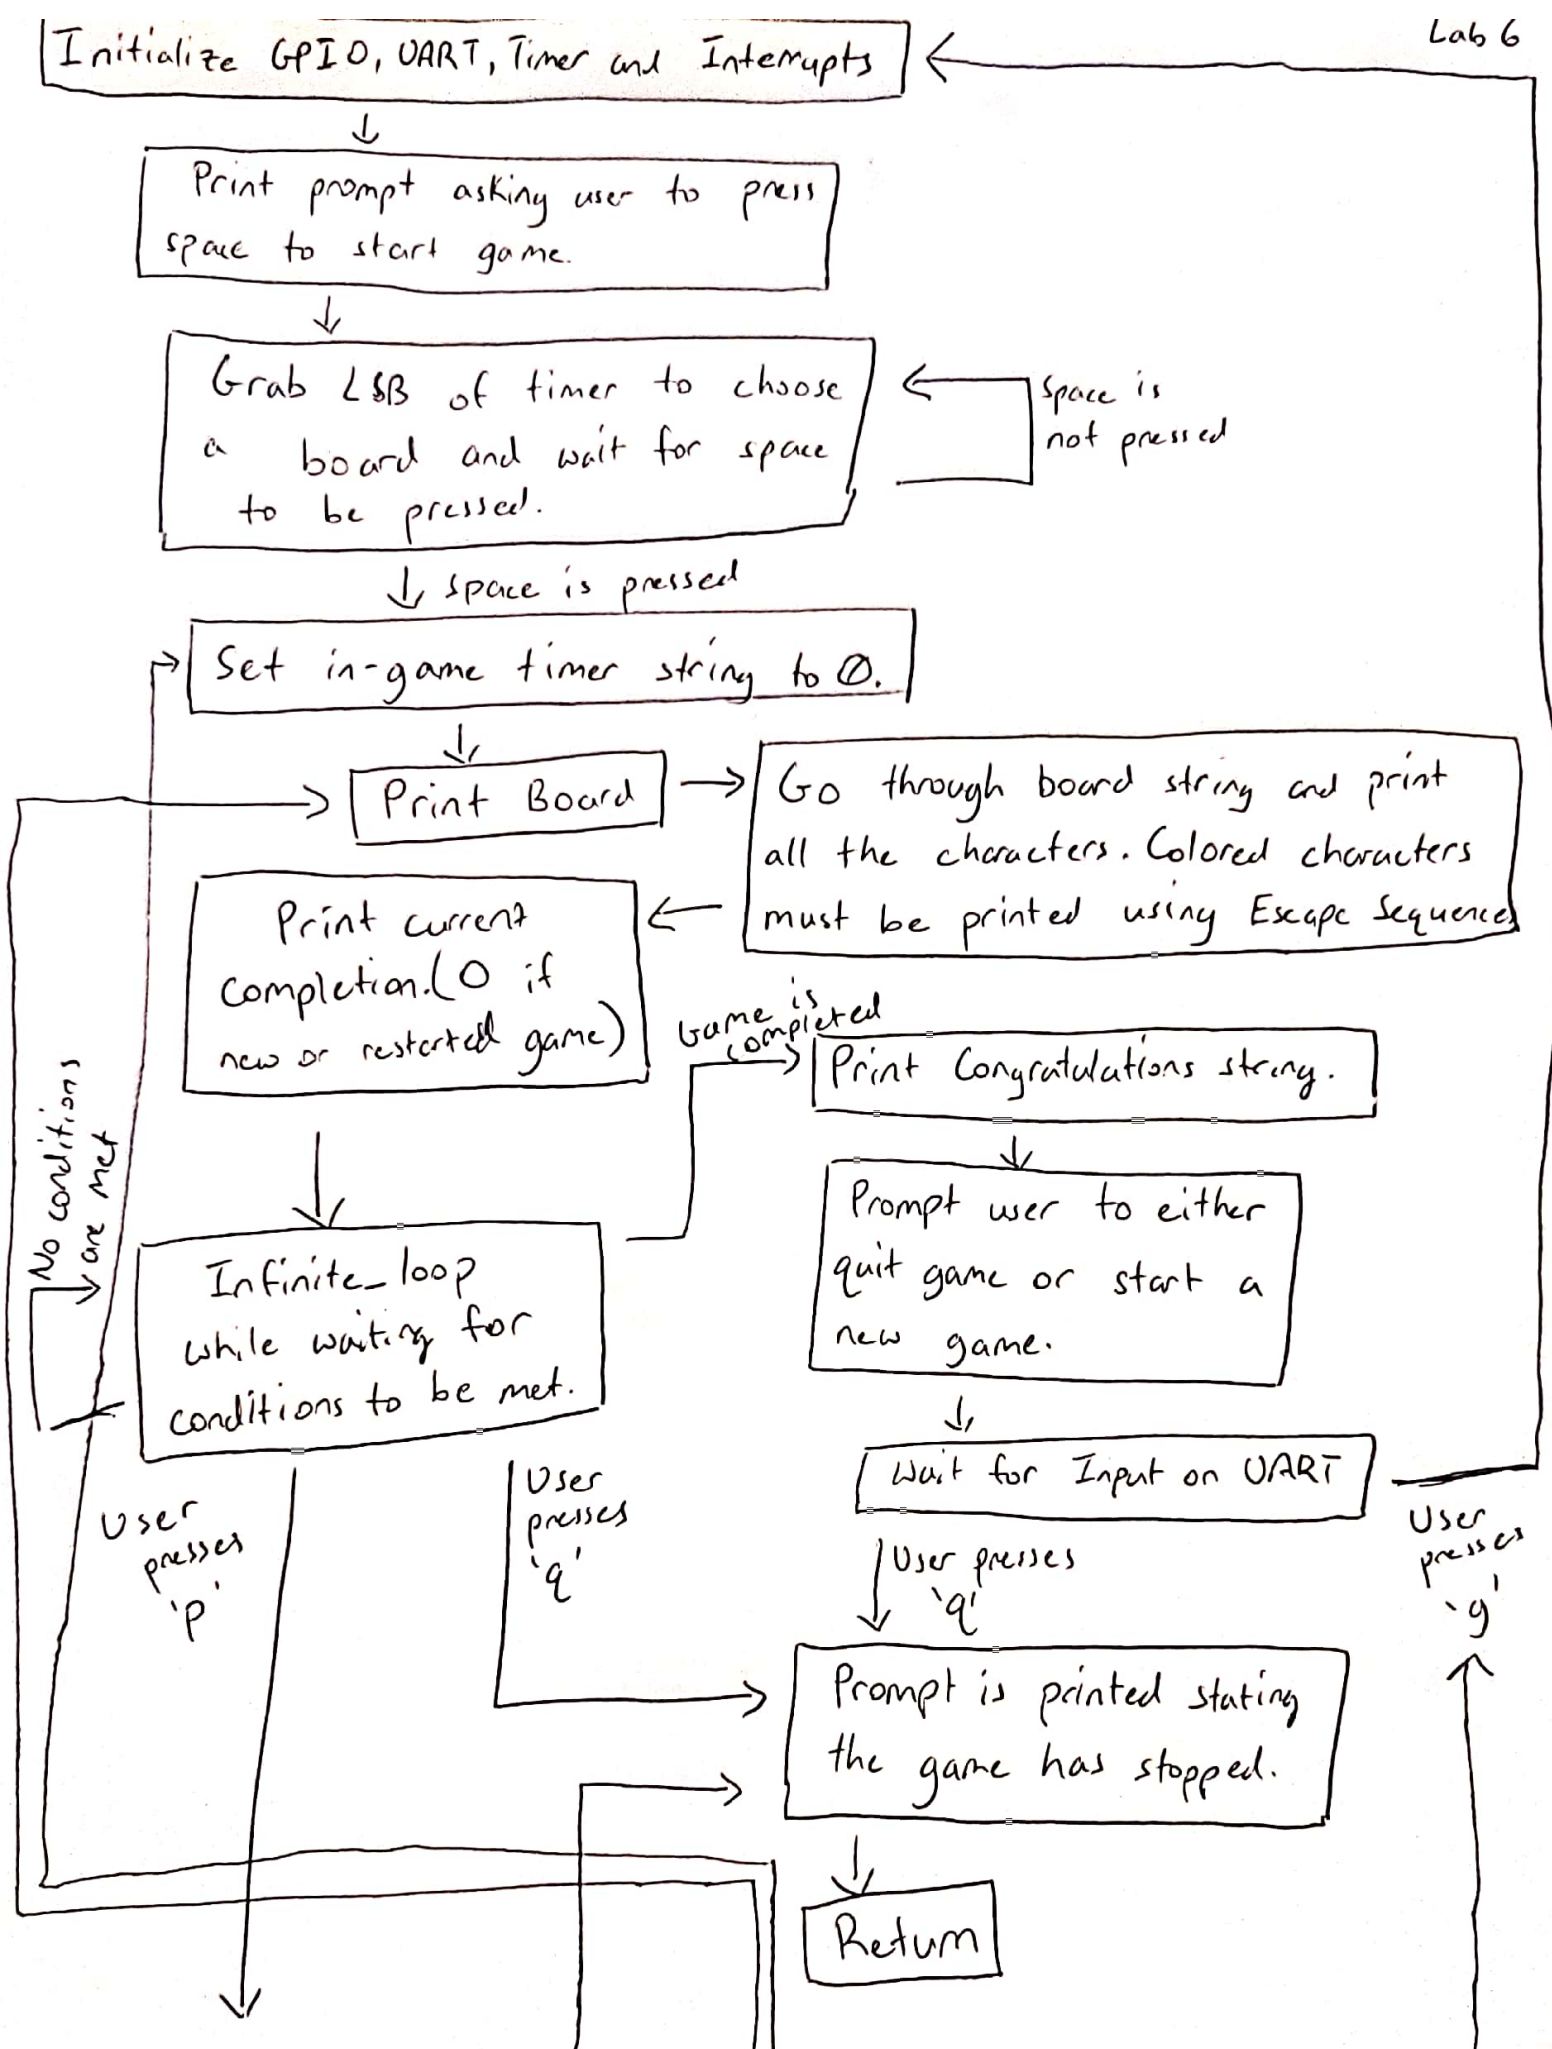 Lab 6
Initialize GPIO, UART, Timer and Interrupts
Print prompt asking user to press
space to start game.
Grab LSB of timer to choose
a board and wait for space
to be pressed.
space is
not pressed
space is pressed
Set in-game timer string to 0.
Print Board
Go through board string and print
all the characters. Colored characters
must be printed using Escape Sequences
Print current
completion. (0 if
new or restarted game)
Game is
completed
Print Congratulations string.
Prompt user to either
quit game or start a
new game.
No conditions
are met
Infinite_loop
while waiting for
conditions to be met.
Wait for Input on UART
User
presses
'p'
User
presses
'q'
User presses
'q'
User
presses
'g'
Prompt is printed stating
the game has stopped.
Return